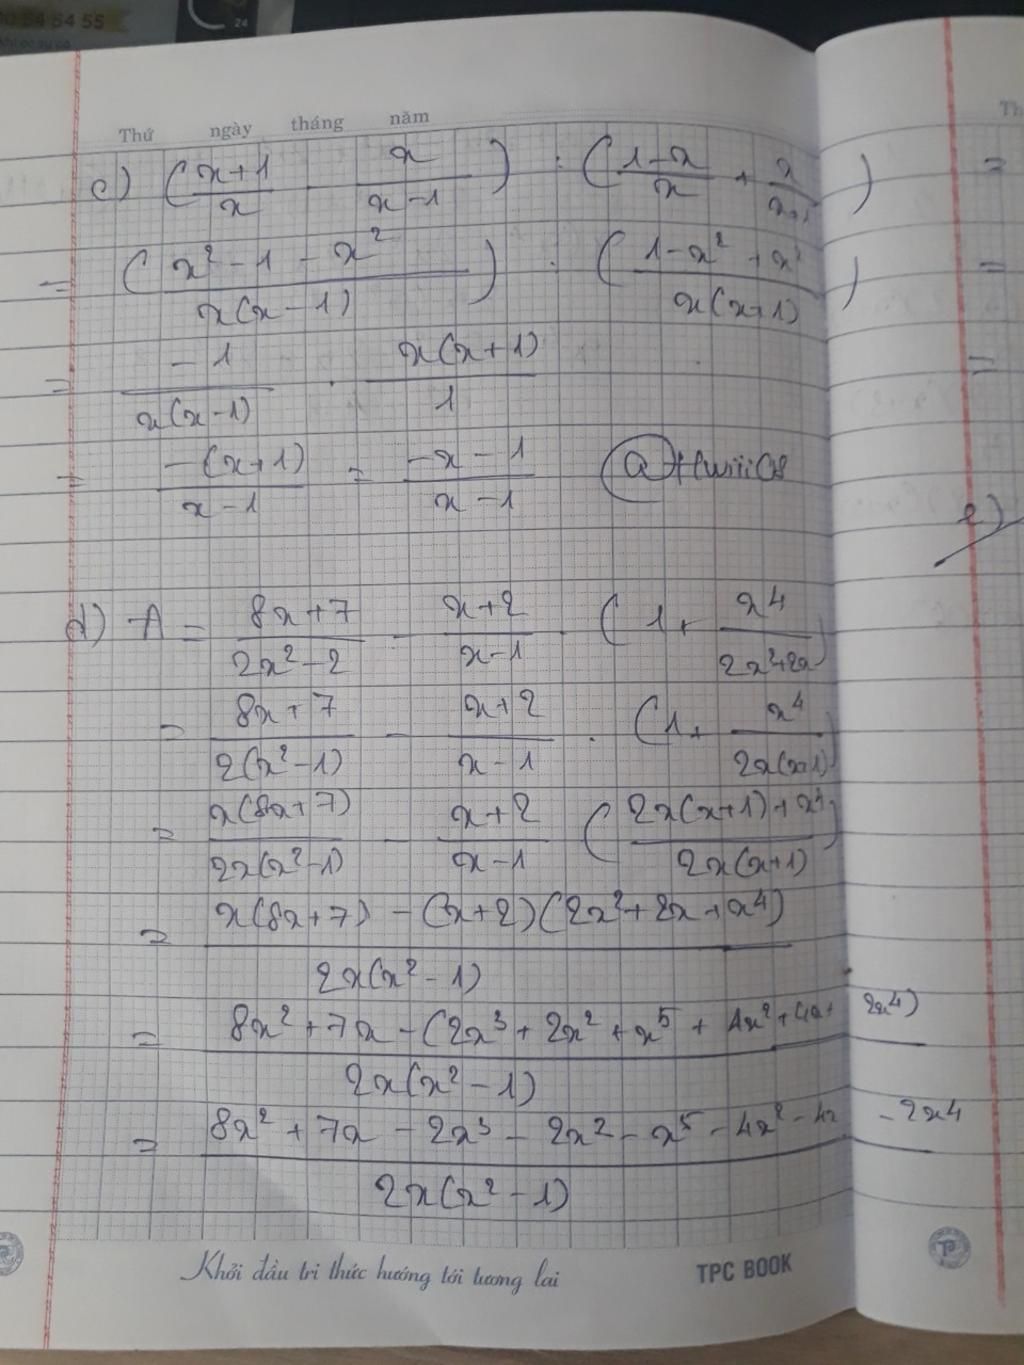 00 54 54 55
24
Thứ ngày tháng năm
c) (x+1/x - x/x-1) : (1-x/x + x/x+1) =
= (x² - 1 - x²/x(x-1)) : (1-x²+x²/x(x+1)) =
= -1/x(x-1) . x(x+1)/1 =
= -(x+1)/x-1 = -x-1/x-1
e)
d) A = 8x+7/2x²-2 - x+2/x-1 . (1 + x⁴/2x²+2x)
= 8x+7/2(x²-1) - x+2/x-1 . (1 + x⁴/2x(x+1))
= x(8x+7)/2x(x²-1) - x+2/x-1 (2x(x+1)+x⁴/2x(x+1))
= x(8x+7) - (x+2)(2x²+2x+x⁴)/2x(x²-1)
= 8x²+7x-(2x³+2x²+x⁵+4x²+4x+2x⁴)/2x(x²-1)
= 8x²+7x-2x³-2x²-x⁵-4x²-4x-2x⁴/2x(x²-1)
Khởi đầu tri thức hướng tới tương lai TPC BOOK